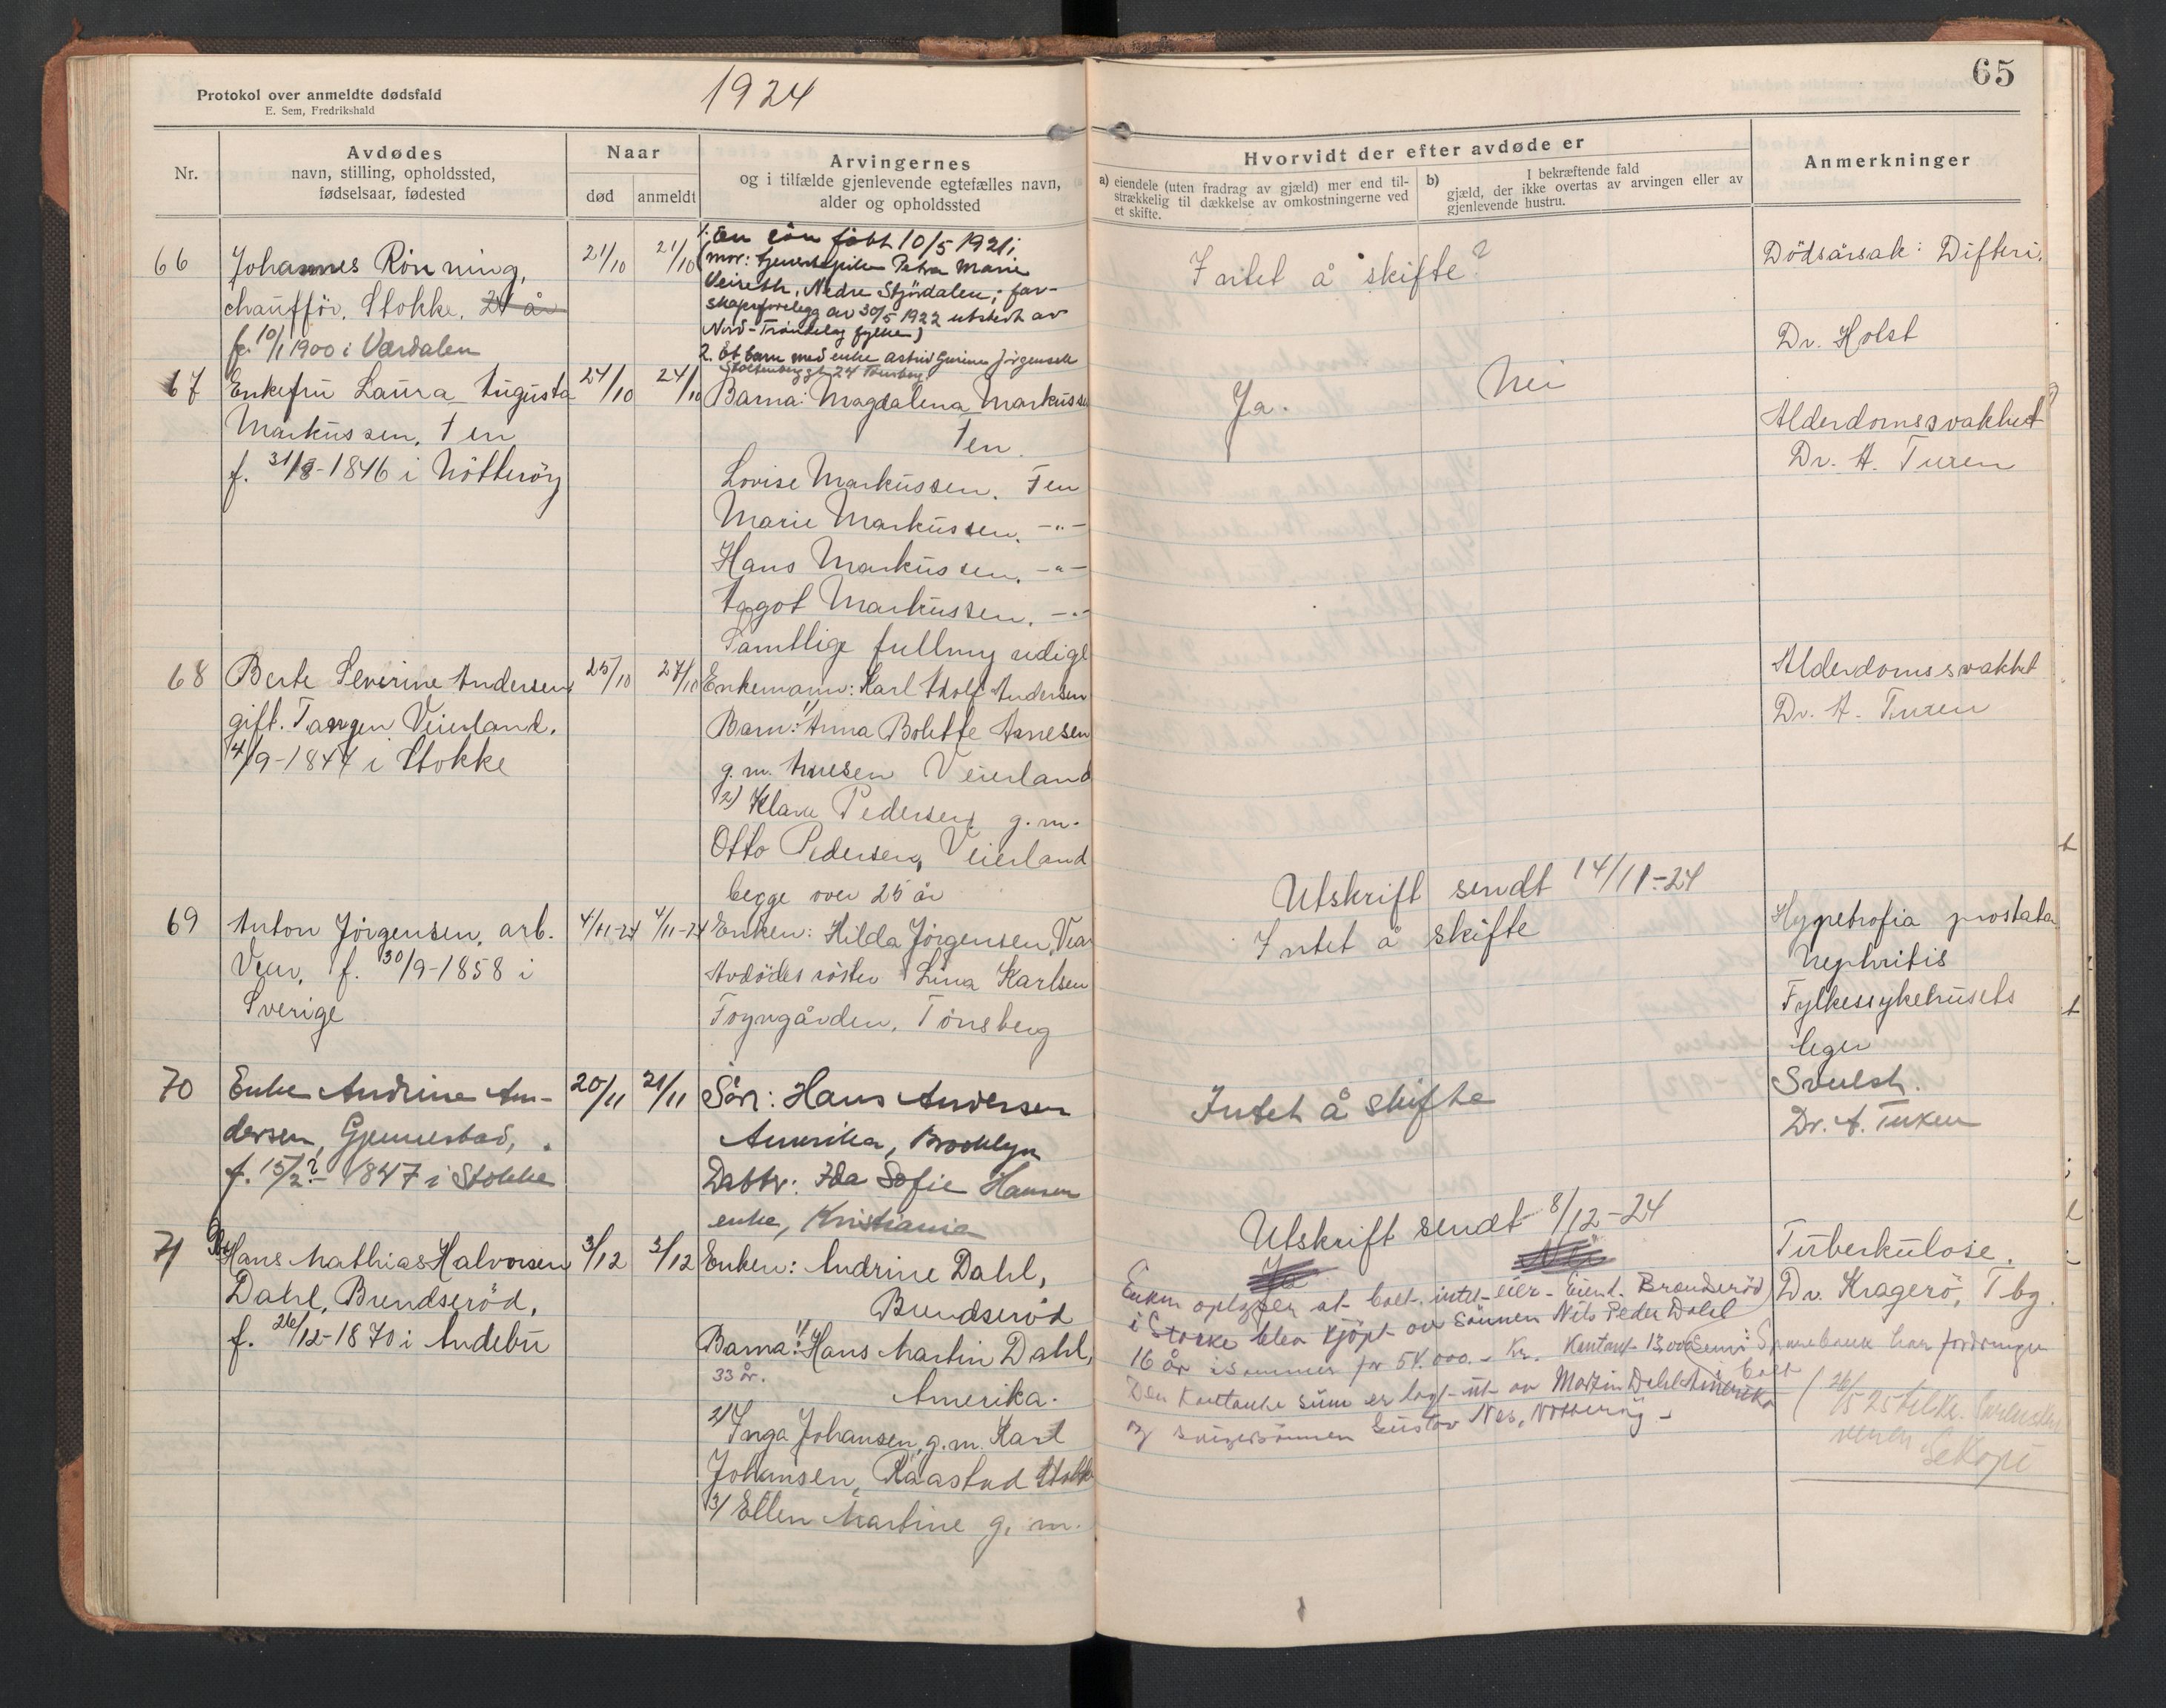 65
Protokol over anmeldte dødsfald
E. Sem, Fredrikshald
1924
Nr.
Avdødes
navn, stilling, opholdssted,
fødselsaar, fødested
Naar
død
anmeldt
Arvingernes
og i tilfælde gjenlevende egtefælles navn,
alder og opholdssted
Hvorvidt der efter avdøde er
a) eiendele (uten fradrag av gjæld) mer end til-
strækkelig til dækkelse av omkostningerne ved
et skifte.
b) I bekræftende fald
gjæld, der ikke overtas av arvingen eller av
gjenlevende hustru.
Anmerkninger
66
Johannes Rönning,
chaufför, Stokke, 24 år
f. 10/1 1900 i Værdalen
21/10
21/10
1. En sön födt 10/5 1921 i
(mor: tjenestepike Petra Marie
Veiseth, Nedre Stjördalen; far-
skapsforelegg av 30/5 1922 utstedt av
Nord-Tröndelag fylke)
2. Et barn med enke Astrid Gurine Jörgensen
24 Tönsberg
Intet å skifte?
Dödsårsak: Difteri.
Dr. Holst
67
Enkefru Laura Augusta
Markussen, Ten
f. 31/8-1846 i Nötteröy
24/10
24/10
Barna: Magdalena Markussen
Ten.
Lovise Markussen. Ten
Marie Markussen. -"-
Hans Markussen. -"-
Aagot Markussen. -"-
Samtlige fullmyndige
Ja.
Nei
Alderdomssvakhet
Dr. A. Tuxen
68
Berte Severine Andersen,
gift. Tangen Veierland.
4/9-1844 i Stokke
25/10
27/10
Enkemann: Karl Adolf Andersen
Barn: 1) Anna Bolette Arnesen
g.m. Arnesen Veierland
2) Klara Pedersen g.m.
Otto Pedersen, Veierland
begge over 25 år
Alderdomssvakhet
Dr. A. Tuxen
Utskrift sendt 14/11-24
69
Anton Jörgensen, arb.
Vear, f. 30/9-1858 i
Sverige
4/11-24
4/11-24
Enken: Hilda Jörgensen, Vear
Avdödes söster Lina Karlsen
Foyngården, Tönsberg
Intet å skifte
Hypetrofia prostata
Nephritis
Fylkessykehusets
leger
70
Enke Andrine An-
dersen, Gjennestad,
f. 15/2?- 1847 i Stokke
20/11
21/11
Sön: Hans Andersen
Amerika, Brooklyn
Datter: Ida Sofie Hansen
enke, Kristiania
Intet å skifte
Svulst.
Dr. A. Tuxen
Utskrift sendt 8/12-24
71
Hans Mathias Halvorsen
Dahl, Brendseröd,
f. 26/12-1870 i Andebu
3/12
3/12
Enken: Andrine Dahl,
Brendseröd
Barna: 1) Hans Martin Dahl,
33 år.
Amerika.
2) Inga Johansen, g.m. Karl
Johansen, Råastad Stokke
3/ Ellen Martine g. m.
Ja
Nei
Enken oplyser at boet intet eier. Eiend. Branderöd
i Stokke blev kjöpt av sönnen Nils Peder Dahl
16 år i sommer for 54.000.- Kr. Kontant 13.000
Sparebank har fordringer i boet
Den kontante sum er lagt ut av Martin Dahl Amerika
og svigersönnen Gustav Nes, Nötteröy -
Tüberkulose.
Dr. Kragerö, Tbg.
26/5 25